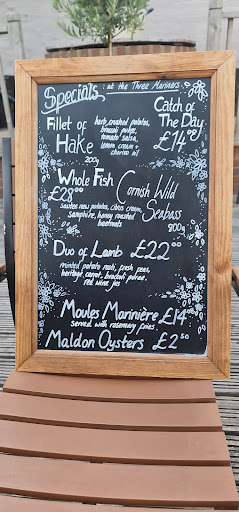 Specials at the Three Mariners
Fillet of Hake 200g
herb crushed potatoes,
broccoli puree,
tomato salsa,
lemon cream +
chorizo oil
Catch of
The Day
£14
Whole Fish Cornish Wild
£28.00 Seabass
900g
sautee new potatoes, citrus cream,
samphire, honey roasted
beetroots
Duo of Lamb £22.00
minted potato rosti, fresh peas,
heritage carrot, broccoli puree,
red wine jus
Moules Marinière £14
served with rosemary fries
Maldon Oysters £2.50